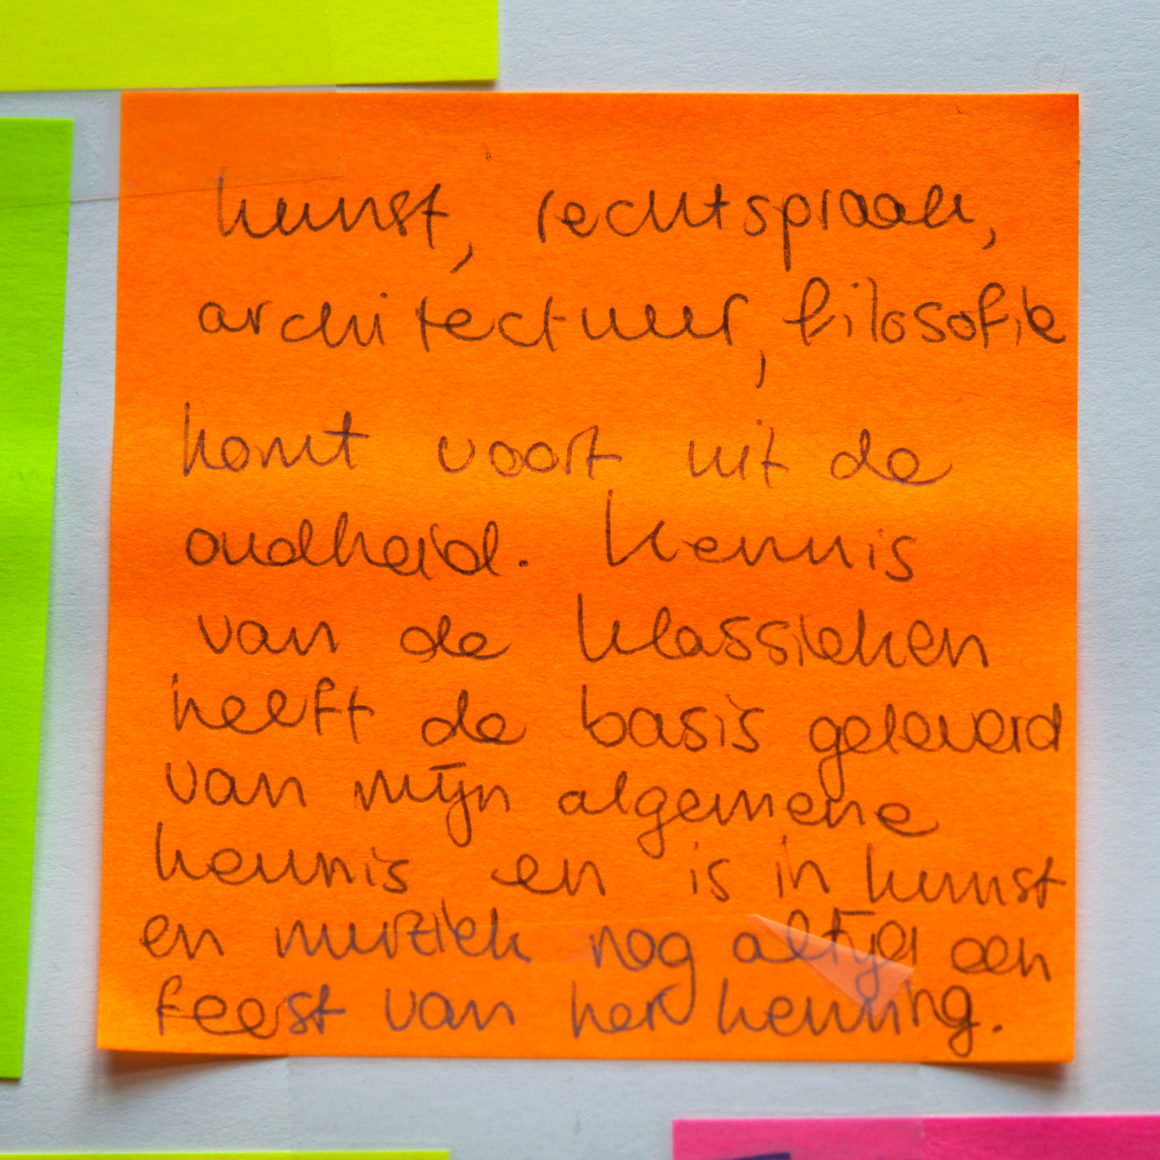 kunst, rechtspraak,
architectuur, filosofie
komt voort uit de
oudheid. Kennis
van de klassieken
heeft de basis geleverd
van mijn algemene
kennis en is in kunst
en muziek nog altijd een
feest van herkenning.